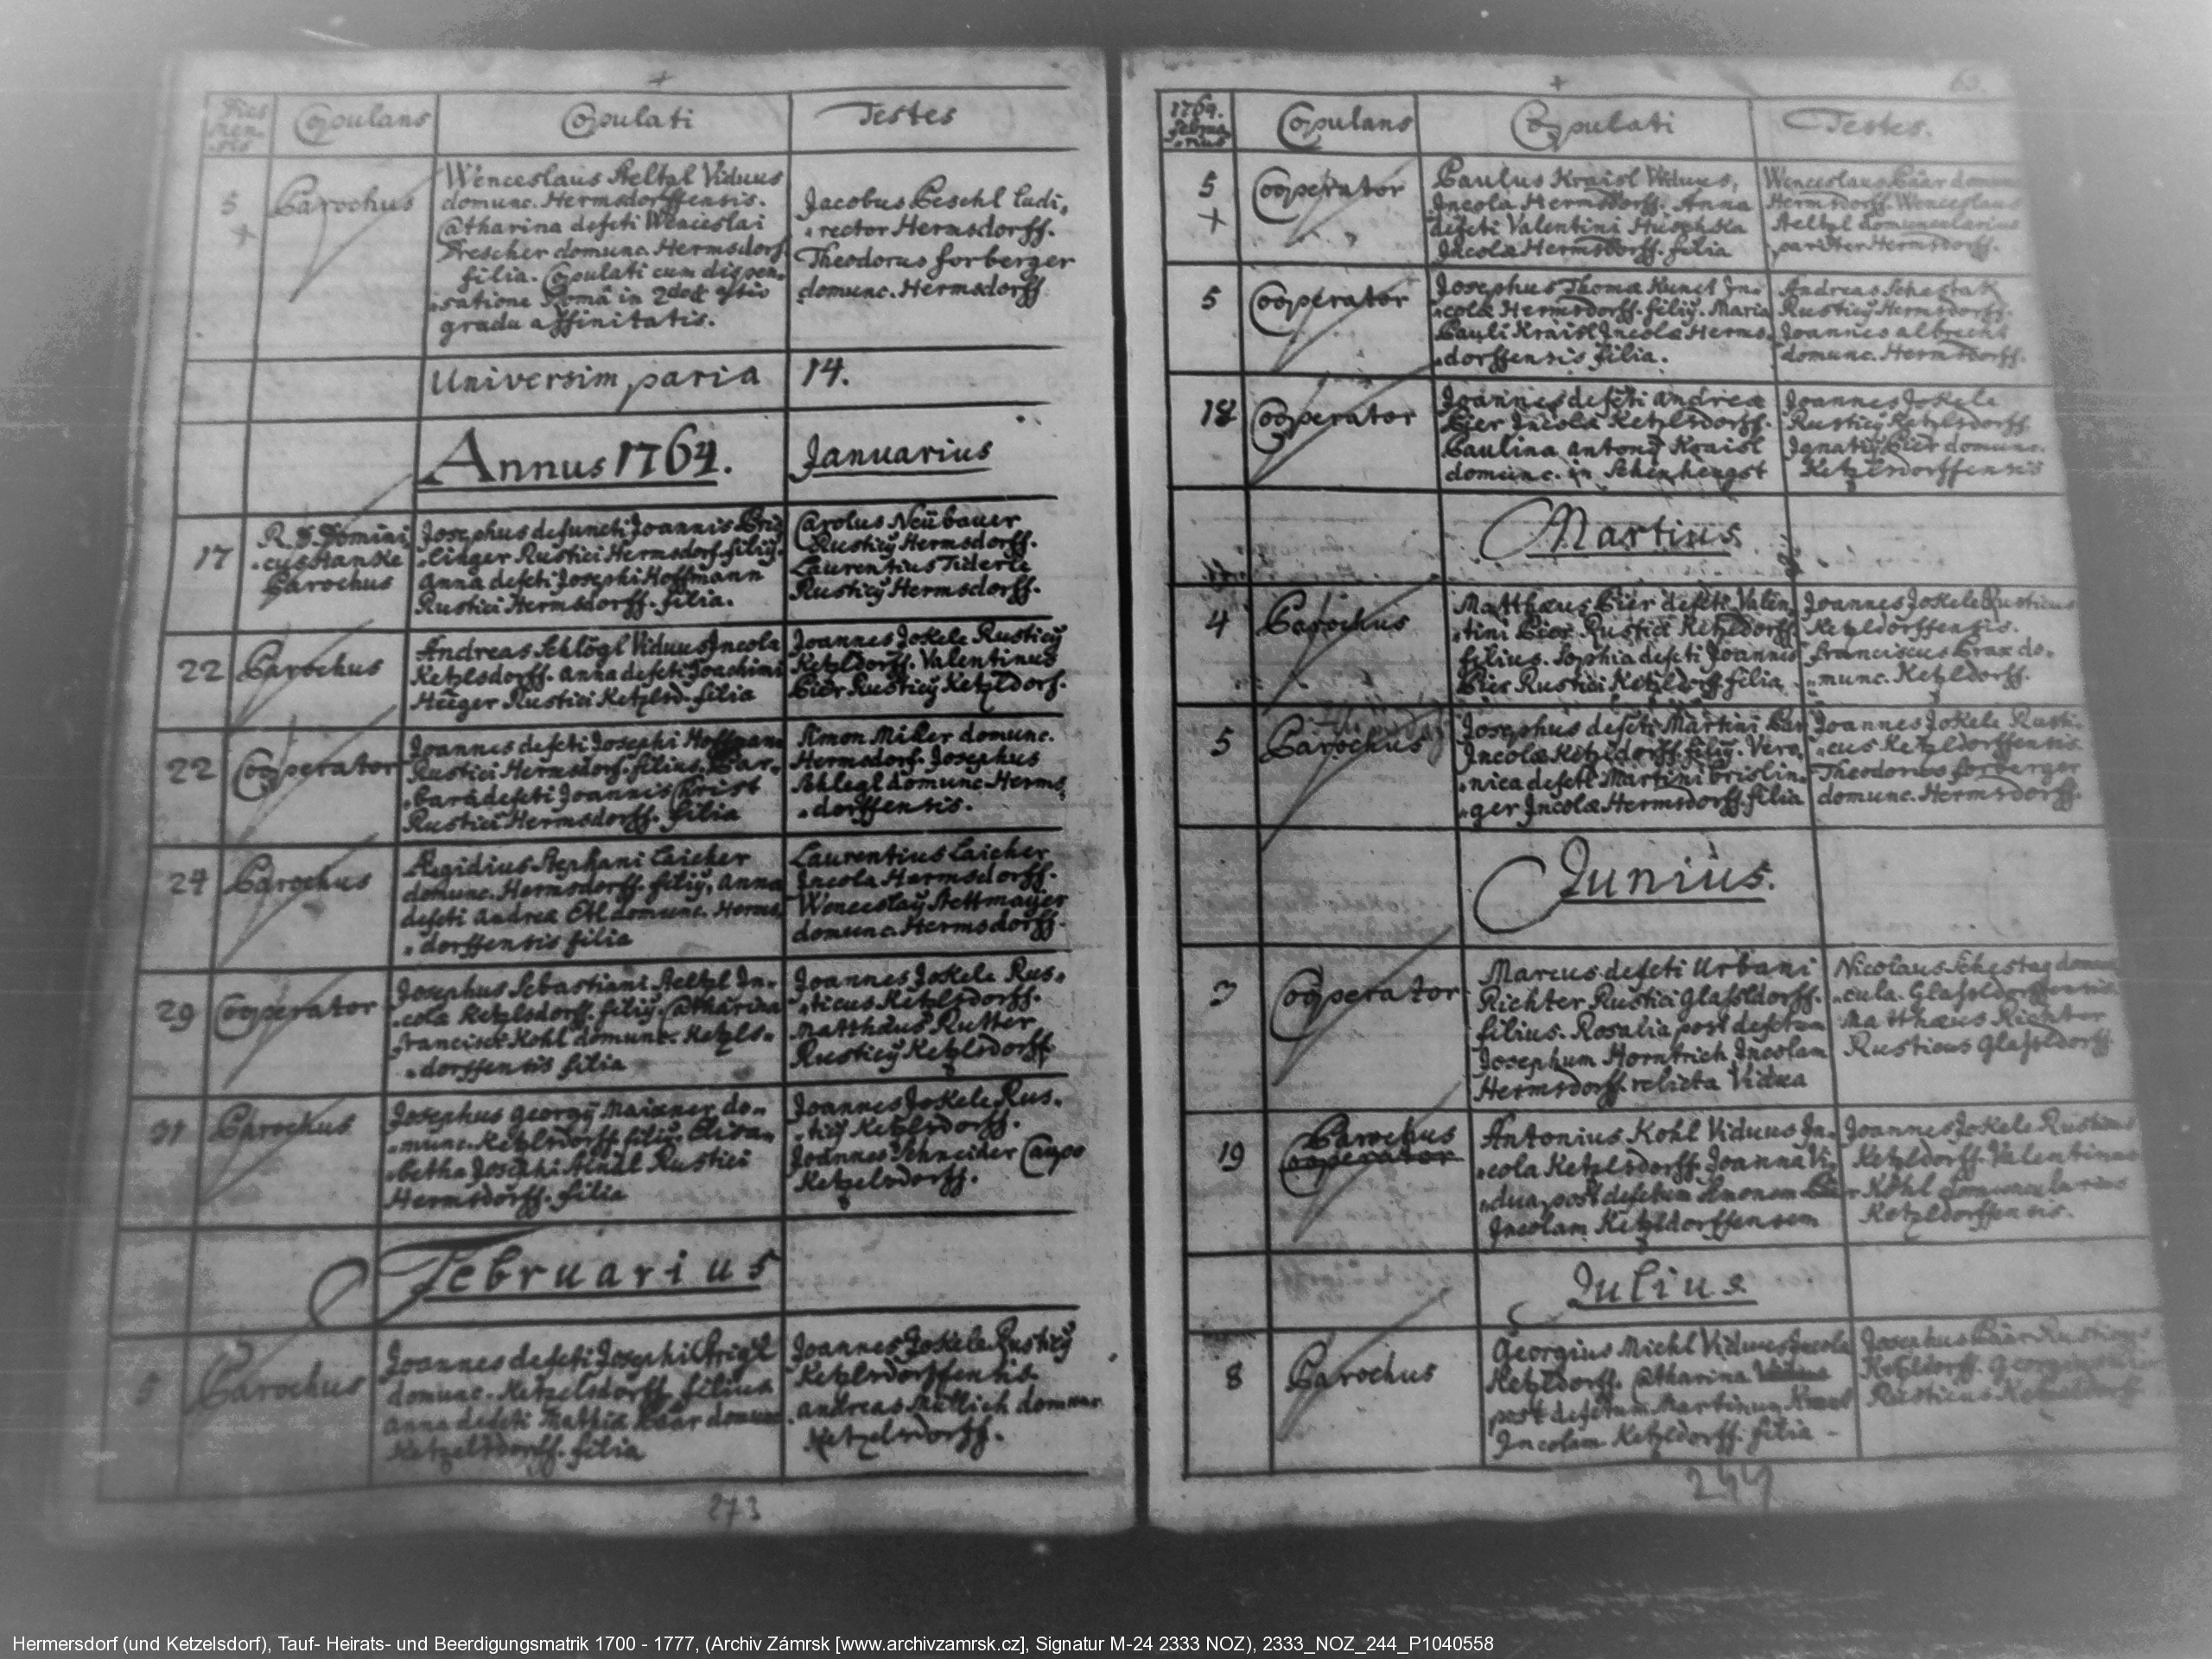 Dies men- sis
Copulans
Copulati
Testes
5
Parochus
Wenceslaus Aeltzl Viduus
domunc. Hermsdorffensis.
Catharina defcti Wenceslai
Prescher domunc. Hermsdorf
filia. Copulati cum dispen-
satione Româ in
gradu affinitatis.
Jacobus Peschl Ludi-
rector Hermsdorff.
Theodorus forberger
domunc. Hermsdorff
Universim paria 14.
Annus 1764. Januarius
17
R. D. Domini
cus Hanske
Parochus
Josephus defuncti Joannis Bris
linger Rustici Hermsdorf. filiy.
Anna defcti Josephi Hoffmann
Rustici Hermsdorff. filia.
Carolus Neübauer
Rusticy Hermsdorff.
Laurentius Tiderle
Rusticy Hermsdorff.
22
Parochus
Andreas Schlögl Viduus Incola
Ketzlsdorff. Anna defcti Joachimi
Heeger Rustici Ketzlsd. filia
Joannes Jokele Rusticy
Ketzldorff. Valentinus
Bier Rusticy Ketzldorf.
22
Cooperator
Joannes defcti Josephi Hoffmann
Rustici Hermsdorf. filius. Bar-
bara defcti Joannis Christ
Rustici Hermsdorff. filia
Simon Miller domunc.
Hermsdorf. Josephus
Schlegl domunc. Herms
dorffensis.
24
Parochus
Aegidius Stephani Laicher
domunc. Hermsdorff. filiy, Anna
defcti Andrea Etl domunc. Herms
dorffensis filia
Laurentius Laicher
Incola Hermsdorff.
Wenceslay Stettmayer
domunc. Hermsdorff.
29
Cooperator
Josephus Sebastiani Aeltzl In-
cola Ketzlsdorff. filiy. Catharina
francisci Kohl domunc. Ketzls-
dorffensis filia
Joannes Jokele Rus-
ticus Ketzlsdorff.
Matthäus Rutter
Rusticy Ketzlsdorff
31
Parochus
Josephus Georgy Maixner do-
munc. Ketzlsdorff filiy. Elisa-
betha Josephi Aindl Rustici
Hermsdorff. filia
Joannes Jokele Rus-
ticy Ketzlsdorff.
Joannes Schneider Caupo
Ketzelsdorff.
Februarius
5
Parochus
Joannes defcti Josephi
domunc. Ketzelsdorff. filius
Anna defcti Mathia Bäär domunc
Ketzelsdorff. filia
Joannes Jokele Rusticy
Ketzlsdorffensis.
Andreas Mütlich domunc.
Ketzelsdorff.
273
1764.
Februa
rius
Copulans
Copulati
Testes.
5
Cooperator
Paulus Kraisl Viduus,
Incola Hermsdorff. Anna
defcti Valentini
Incola Hermsdorff. filia
Wenceslaus Bäär domunc
Hermsdorff. Wenceslaus
Aeltzl domuncularius
pariter Hermsdorff.
5
Cooperator
Josephus Thoma Kunet In-
cola Hermsdorff. filiy. Maria
Pauli Kraisl Incola Herms-
dorffensis filia.
Andreas Schestak
Rusticy Hermsdorff.
Joannes Albrecht
domunc. Hermsdorff.
18
Cooperator
Joannes defcti Andrea
Bier Incola Ketzlsdorff.
Paulina Antony Kraisl
domunc. in Schenhengst
Joannes Jokele
Rusticy Ketzlsdorff
Ignatiy Bier domunc.
Ketzlsdorffensis
Martius
4
Parochus
Matthäus Bier defcti Valen-
tini Bier Rustici Ketzldorff
filius. Sophia defcti Joannis
Bier Rustici Ketzldorff filia
Joannes Jokele Rusticus
Ketzldorffensis.
franciscus Brax do-
munc. Ketzldorff.
5
Parochus
Josephus defcti Martini
Incola Ketzldorff. filiy. Vero-
nica defcti Martini Brislin-
ger Incola Hermsdorff. filia
Joannes Jokele Rusti-
cus Ketzldorffensis
Theodorus forberger
domunc. Hermsdorff.
Junius.
3
Cooperator
Marcus defcti Urbani
Richter Rustici Glasldorff.
filius. Rosalia post defctum
Josephum Horntrich Incolam
Hermsdorff. relicta Vidua
Nicolaus Schestag domun
cula. Glasldorffensis
Matthäus Richter
Rusticus Glasldorff
19
Parochus
Cooperator
Antonius Kohl Viduus In-
cola Ketzlsdorff. Joanna Vi-
dua post defctum Simonem
Incolam Ketzldorffensem
Joannes Jokele Rusticus
Ketzldorff. Valentinus
Kohl domuncularius
Ketzldorffensis.
Julius
8
Parochus
Georgius Michl Viduus Incola
Ketzldorff. Catharina
post defctum Martinum
Incolam Ketzldorff. filia
Josephus Bäär Rusticus
Ketzldorff. Georgius
Rusticus Ketzeldorff